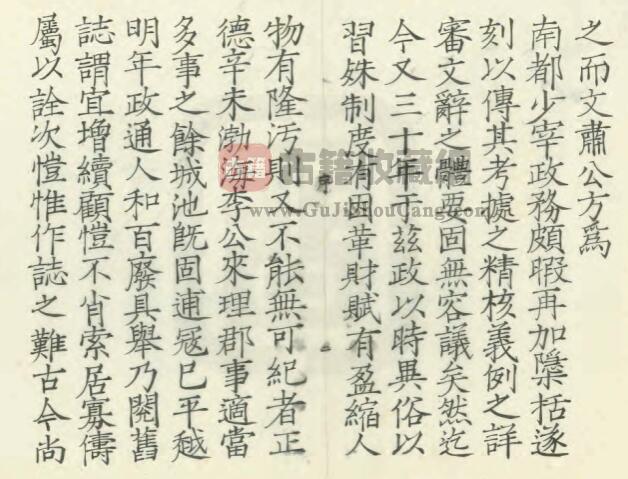 之而文肅公方爲
南都少宰政務頗暇再加檃括遂
刻以傳其考據之精核義例之詳
審文辭之體要固無容議矣然迄
今又三十年于茲政以時異俗以
習殊制度有因革財賦有盈縮人
序
二
物有隆污則又不能無可紀者正
德辛未渤海李公來理郡事適當
多事之餘城池旣固逋冦已平越
明年政通人和百廢具舉乃閱舊
誌謂宜增續顧愷不肖索居寡儔
屬以詮次愷惟作誌之難古今尚
古籍 古籍收藏网
www.GuJiShouCang.com